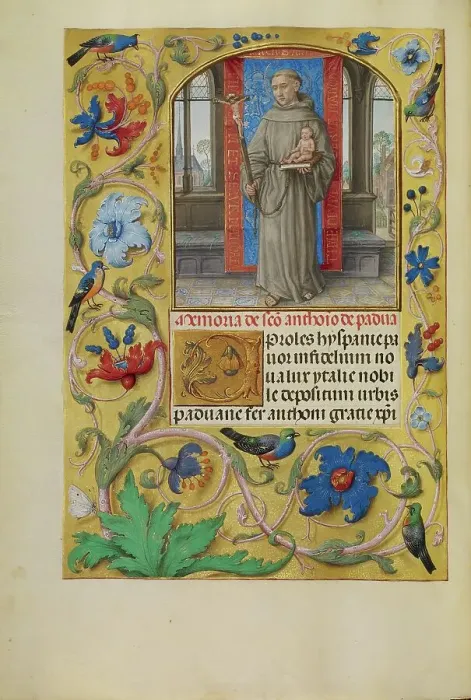 Memoria de sco anthoio de padua
Proles hyspanie pa
uor infidelium no
ua lux ytalie nobi
le depositum urbis
paduane fer anthoni gratie xpi